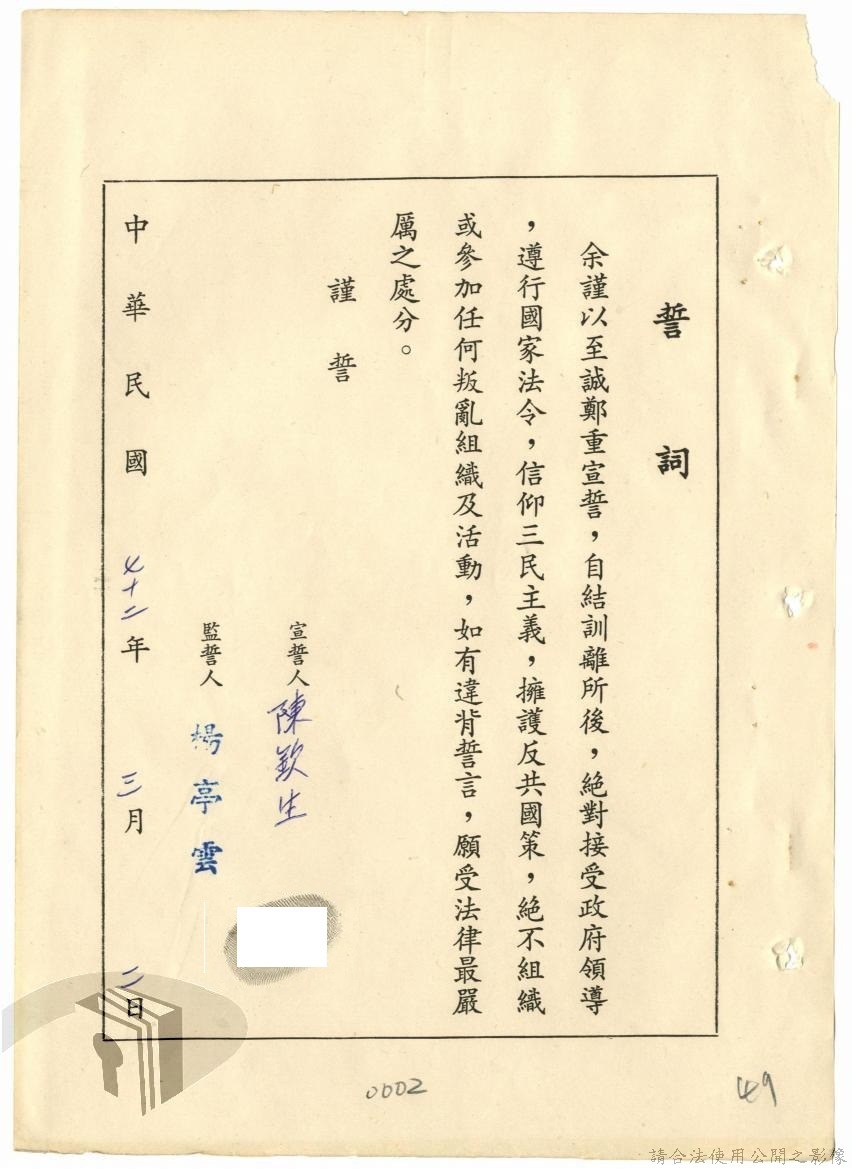 誓詞
余謹以至誠鄭重宣誓，自結訓離所後，絕對接受政府領導
，遵行國家法令，信仰三民主義，擁護反共國策，絕不組織
或參加任何叛亂組織及活動，如有違背誓言，願受法律最嚴
厲之處分。
謹誓
宣誓人 陳欽生
監誓人 楊亭雲
中華民國七十二年三月二日
0002
49
請合法使用公開之影像